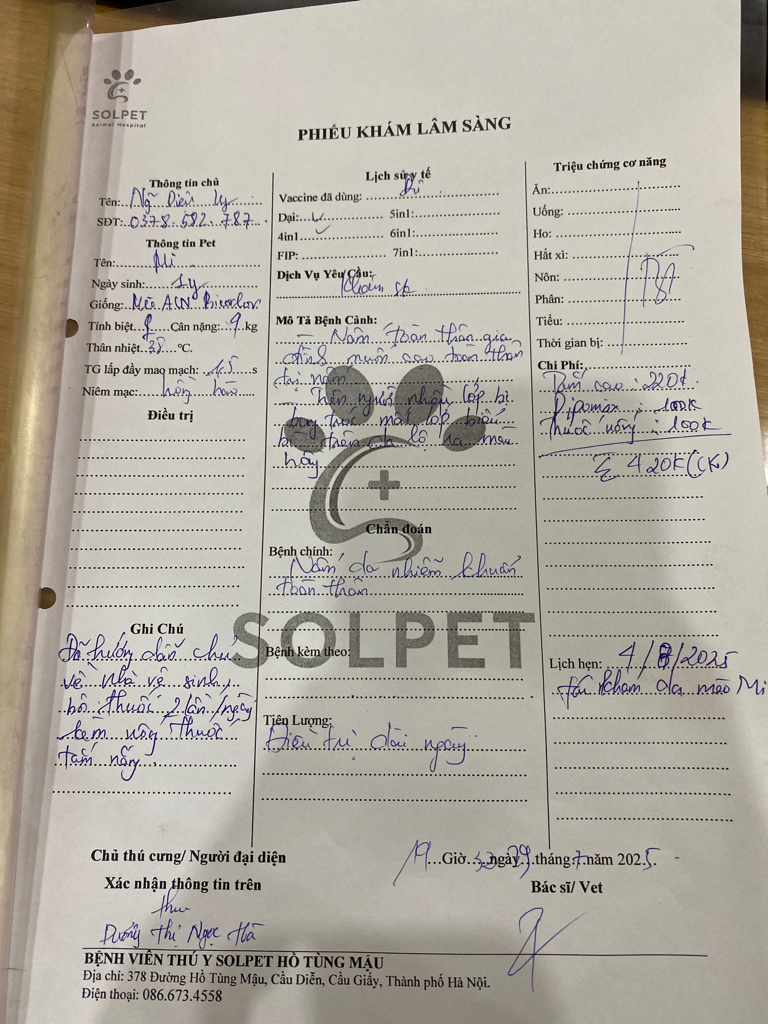 SOLPET
Animal Hospital
PHIẾU KHÁM LÂM SÀNG
Thông tin chủ
Tên: Ngũ Diệu Ly
SĐT: 0378 582 787
Thông tin Pet
Tên: Mi
Ngày sinh: 1y
Giống: Mèo ALN Bicolor
Tính biệt Cân nặng: 9 kg
Thân nhiệt: 38 °C.
TG lấp đầy mao mạch: 1.5 s
Niêm mạc: hồng hào
Điều trị
Ghi Chú
Đã hướng dẫn chủ
về nhà vệ sinh,
bôi thuốc 2 lần/ngày
kèm uống thuốc
tắm nấm
Lịch sử y tế
Vaccine đã dùng: Đủ
Dại: ✓ 5in1:
4in1 ✓ 6in1:
FIP: 7in1:
Dịch Vụ Yêu Cầu:
Khám sk
Mô Tả Bệnh Cảnh:
- Nấm toàn thân gia
đình muốn cạo toàn thân
trị nấm
- Trên người nhiều lớp bị
bong tróc mất lớp biểu
bì trên da lộ ra màu
hồng
Chẩn đoán
Bệnh chính:
Nấm da nhiễm khuẩn
toàn thân
SOLPET
Bệnh kèm theo:
Tiên Lượng:
Điều trị dài ngày
Triệu chứng cơ năng
Ăn:
Uống:
Ho:
Hắt xì:
Nôn:
Phân:
Tiểu:
Thời gian bị:
BT
Chi Phí:
Tắm cạo: 220k
Dipomax: 100k
Thuốc uống: 100k
Σ 420K (CK)
Lịch hẹn: 4/8/2025
tái khám da mèo Mi
Chủ thú cưng/ Người đại diện
Xác nhận thông tin trên
Dương Thị Ngọc Hà
19 Giờ 32 ngày 29 tháng 7 năm 2025.
Bác sĩ/ Vet
BỆNH VIÊN THÚ Y SOLPET HỒ TÙNG MẬU
Địa chỉ: 378 Đường Hồ Tùng Mậu, Cầu Diễn, Cầu Giấy, Thành phố Hà Nội.
Điện thoại: 086.673.4558